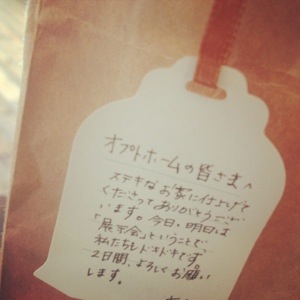 オプトホームの皆さまへ
ステキなお家に仕上げて
くださってありがとうござ
います。今日、明日は
「展示会」ということで
私たちもドキドキです。
2日間、よろしくお願い
します。